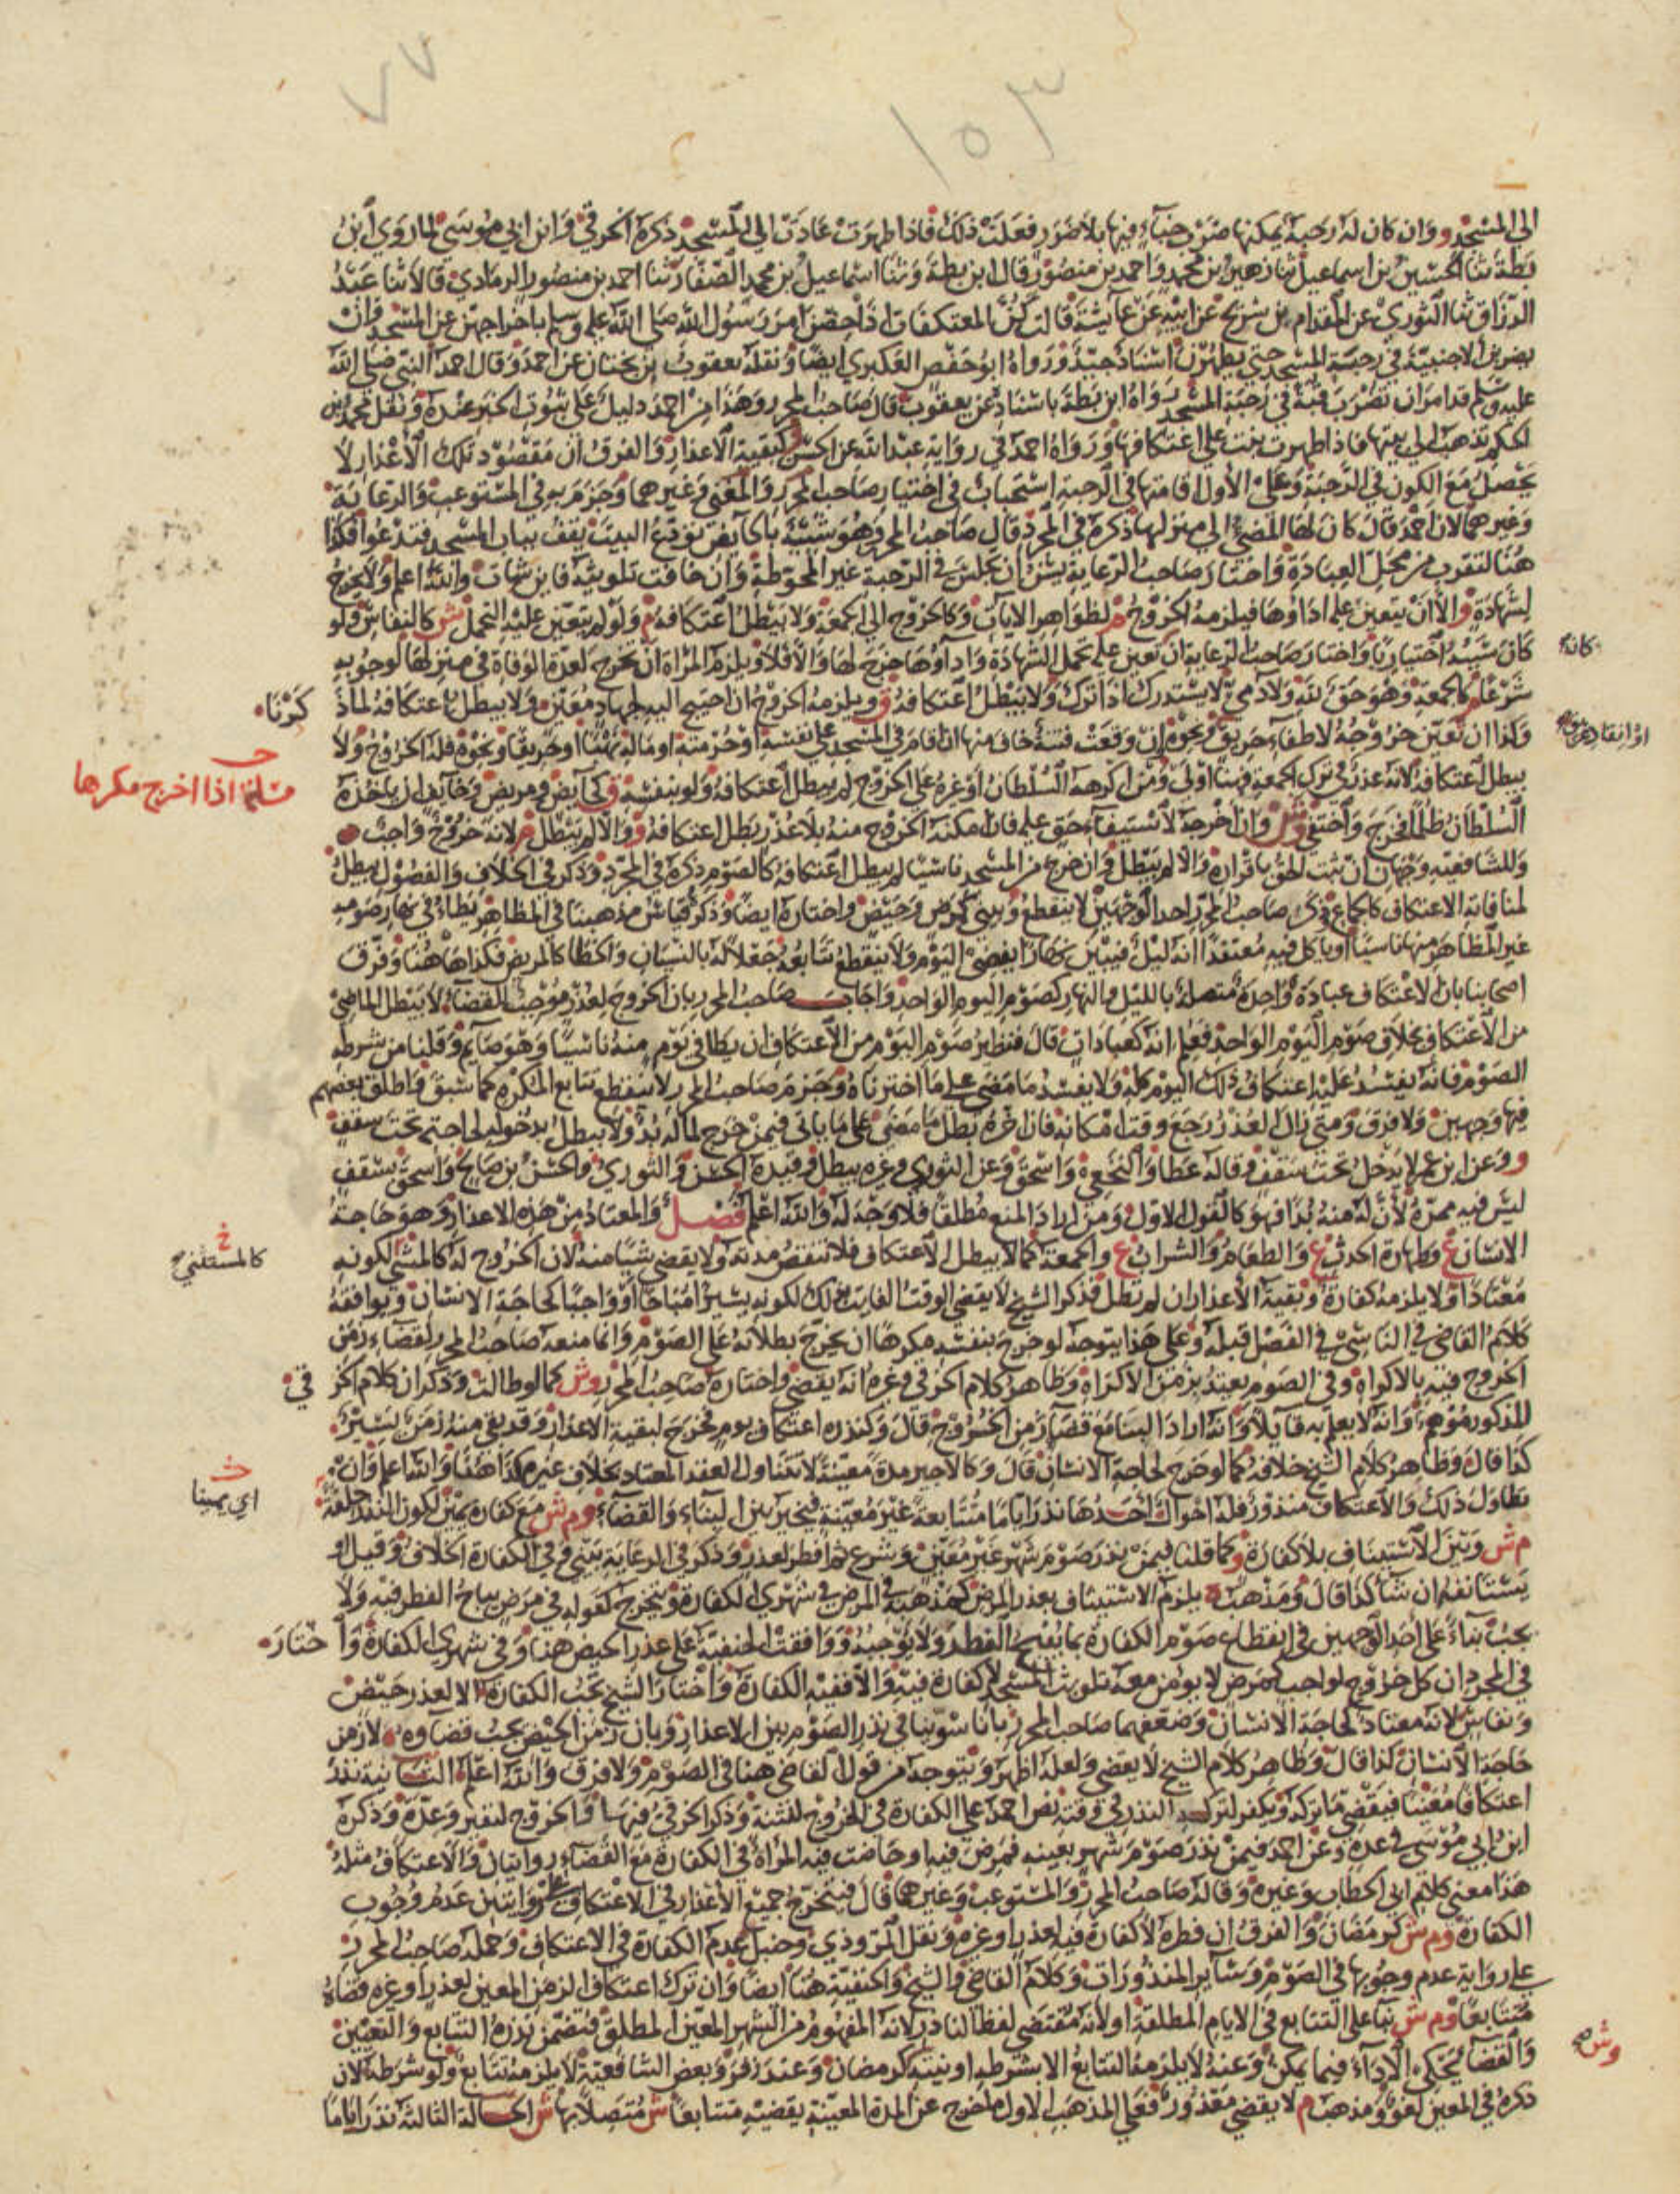 ٧٧
١٥٣
الى المسجد و وان كان له رحبة يمكنها ضرب خباء فيها بلا ضرر فعلت ذلك فاذا طهرت عادت الى المسجد ذكره الخرقي وابن ابي موسى لما روى ابن
بطة ثنا الحسين بن اسماعيل ثنا زهير بن محمد واحمد بن منصور قال ابن بطة وثنا اسماعيل بن محمد الصفار ثنا احمد بن منصور الرمادي قالا ثنا عبد
الرزاق ثنا الثوري عن المقدام بن شريح عن ابيه عن عائشة قالت كن المعتكفات اذا حضن امر رسول الله صلى الله عليه وسلم باخراجهن عن المسجد وان
يضربن الاخبية في رحبة المسجد حتى يطهرن اسناد جيد ورواه ابو حفص العكبري ايضا ونقله يعقوب بن بختان عن احمد وقال احمد النبي صلى الله
عليه وسلم قد امر ان تضرب قبة في رحبة المسجد رواه ابن بطة باسناد عن يعقوب قال صاحب المحرر وهذا من احمد دليل على ثبوت الخبر عنده ونقل محمد بن
الحكم تذهب الى بيتها فاذا طهرت بنت على اعتكافها ورواه احمد في رواية عبد الله عن الحسن كبقية الاعذار والفرق ان مقصود تلك الاعذار لا
يحصل مع الكون في الرحبة وعلى الاول اقامتها في الرحبة استحباب في اختيار صاحب المحرر والمغني وغيرهما وجزم به في المستوعب والرعاية
وغيرهما لان احمد قال كان لها المضي الى منزلها ذكره في المجرد قال صاحب المحرر وهو شبيه بالحائض تودع البيت تقف بباب المسجد فتدعوا فكذا
هنا لتقرب من محل العبادة واختار صاحب الرعاية يسن ان تجلس في الرحبة غير المحوطة وان خافت تلويثه فاين شات والله اعلم ولا يخرج
لشهادة و الا ان يتعين عليه اداؤها فيلزمه الخروج م لظواهر الايات وكالخروج الى الجمعة ولا يبطل اعتكافه م ولو لم يتعين عليه التحمل ش كالنفاس ولو
كان سببه اختياريا واختار صاحب الرعاية ان تعين عليه تحمل الشهادة واداؤها خرج لها والا فلا ويلزم المراة ان تخرج لعدة الوفاة في منزلها لوجوبه
كانه
شرعا م كالجمعة وهو حق لله ولادمي لا يستدرك اذا ترك ولا يبطل اعتكافه ق ويلزمه الخروج ان احتيج اليه لجهاد معين ولا يبطل اعتكافه لما ذ
كرنا
وكذا ان تعين خروجه لاطفاء حريق ونحوه ان وقعت فتنة خاف منها ان اقام في المسجد على نفسه او حرمته او ماله نهبا او حريقا ونحوه فله الخروج ولا
او انقاذ غريق
يبطل اعتكافه لانه عذر في ترك الجمعة فهنا اولى ومن اكرهه السلطان او غيره على الخروج لم يبطل اعتكافه ولو بنفسه ق كحائض ومريض وخائف ان ياخذه
مسئلة اذا اخرج مكرها
السلطان ظلما فخرج واختفى وش وان اخرجه لاستيفاء حق عليه فان امكنه الخروج منه بلا عذر بطل اعتكافه و والا لم يبطل م لانه خروج واجب
وللشافعية وجهان ان ثبت الحق باقراره والا لم يبطل وان خرج من المسجد ناسيا لم يبطل اعتكافه كالصوم ذكره في المجرد وذكر في الخلاف والفصول يبطل
لمنافاته الاعتكاف كالجماع وذكر صاحب المحرر احد الوجهين لا ينقطع ويبني كمرض وحيض واختاره ايضا وذكر قياس مذهبنا في المظاهر يطاء في نهار صومه
غير المظاهر منها ناسيا او ياكل فيه معتقدا انه ليل فيبين نهارا يقضي اليوم ولا ينقطع تتابعه جعلا له بالنسيان والخطا كالمريض فكذا هاهنا وفرق
اصحابنا بان الاعتكاف عبادة واحدة متصلة بالليل والنهار كصوم اليوم الواحد واجاب صاحب المحرر بان الخروج لعذر موجب القضاء لا يبطل الماضي
من الاعتكاف بخلاف صوم اليوم الواحد فعلم انه كعبادات قال فنظير صوم اليوم من الاعتكاف ان يطا في يوم منه ناسيا وهو صائم وقلنا من شرطه
الصوم فانه يفسد عليه اعتكاف ذلك اليوم كله ولا يفسد ما مضى على ما اخترناه وجزم صاحب المحرر لا ينقطع تتابع المكره كما سبق واطلق بعضهم
فيها وجهين ولا فرق ومتى زال العذر رجع وقت امكانه فان اخره بطل ما مضى على ما ياتي فيمن خرج لما له بد ولا يبطل بدخوله لحاجته تحت سقف
و وعن ابن عمر لا يدخل تحت سقف وقاله عطا والنخعي واسحق وعن الثوري وغيره يبطل وقيده الحسن والثوري والحسن بن صالح واسحق بسقف
ليس فيه ممره لان له منه بدا فهو كالقول الاول ومن اراد المنع مطلقا فلا وجه له والله اعلم فصل والمعتاد من هذه الاعذار وهو حاجة
الانسان ع وطهارة الحدث ع والطعام والشراب ع والجمعة كما لا يبطل الاعتكاف فلا تنقص مدته ولا يقضي شيا منه لان الخروج له كالمستثنى لكونه
خ
كالمستثنى
معتادا ولا يلزمه كفارة وبقية الاعذار ان لم تطل فذكر الشيخ لا يقضي الوقت الفايت بذلك لكونه يسيرا مباحا او واجبا كحاجة الانسان ويوافقه
كلام القاضي في الناسي في الفصل قبله وعلى هذا يتوجه لو خرج بنفسه مكرها ان يخرج بطلانه على الصوم وانما منعه صاحب المحرر لقضاء زمن
الخروج فيه بالاكراه وفي الصوم يعتد بزمن الاكراه وظاهر كلام الخرقي وغيره انه يقضي واختاره صاحب المحرر وش كما لو طالت وذكر ان كلام الخر
في
المذكور موهم وانه لا يعلم به قائلا وانه اراد البناء مع قضاء زمن الخروج قال وكنذره اعتكاف يوم فخرج لبقية الاعذار وقد بقي منه زمن يسير
كذا قال وظاهر كلام الشيخ خلافه كما لو خرج لحاجة الانسان قال وكالاجير مدة معينة لا يتناول العقد المعتاد بخلاف غيره كذا هنا والله اعلم وان
تطاول ذلك والاعتكاف منذور فله احوال احدها نذر اياما متتابعة غير معينة فيخير بين البناء والقضاء وم ش مع كفارة يمين لكون النذر حلفة
اي يمينا
م ش وبين الاستيناف بلا كفارة و كما قلنا فيمن نذر صوم شهر غير معين وشرع ثم افطر لعذر وذكر في الرعاية يبني وفي الكفارة الخلاف وقيل او
يستانفه ان شا كذا قال ومذهب م يلزم الاستيناف بعذر المرض كمذهبه في المرض في شهري الكفارة ويتخرج كقوله في مرض يباح الفطر فيه ولا
يجب بناء على احد الوجهين في انقطاع صوم الكفارة بما يبيح الفطر ولا يوجبه ووافقت الحنفية على عذر الحيض هنا وفي شهري الكفارة وا
ختار
في المجرد ان كل خروج لواجب كمرض لا يؤمن معه تلويث المسجد لا كفارة فيه والا ففيه الكفارة واختار الشيخ تجب الكفارة الا لعذر حيض
ونفاس لانه معتاد كحاجة الانسان وضعفهما صاحب المحرر بانا سوينا في نذر الصوم بين الاعذار وبان زمن الحيض يجب قضاؤه لا زمن
حاجة الانسان كذا قال وظاهر كلام الشيخ لا يقضي ولعله اظهر ويتوجه من قول القاضي هنا في الصوم ولا فرق والله اعلم الثانية نذر
اعتكافا معينا فيقضي ما تركه ويكفر لتركه النذر في وقته نص احمد على الكفارة في الخروج لفتنة وذكر الخرقي فيها والخروج لنفير وعدة وذكره
ابن ابي موسى في عدة وعن احمد فيمن نذر صوم شهر بعينه فمرض فيه او حاضت فيه المراة في الكفارة مع القضاء روايتان والاعتكاف مثله
هذا معنى كلام ابي الخطاب وغيره وقاله صاحب المحرر والمستوعب وغيرهما قال فيتخرج جميع الاعذار في الاعتكاف على روايتين عدم وجوب
الكفارة وم ش كرمضان والفرق ان فطره لا كفارة فيه لعذر او غيره ونقل المروذي وحنبل عدم الكفارة في الاعتكاف وحمله صاحب المحرر
على رواية عدم وجوبها في الصوم وسائر المنذورات وكلام القاضي والشيخ والحنفية هنا ايضا وان ترك اعتكاف الزمن المعين لعذر او غيره قضاه
متتابعا وم ش بناء على التتابع في الايام المطلقة او لانه مقتضى لفظ الناذر لانه المفهوم من الشهر المعين المطلق فتضمن نذره التتابع والتعيين
والقضاء يحكي الاداء فيما يمكن وعنه لا يلزمه التتابع الا بشرطه او نيته كرمضان وعند زفر وبعض الشافعية لا يلزمه تتابع ولو شرطه لان
وش صح
ذكره في المعين لغو ومذهب م لا يقضي معذور فعلى المذهب الاول ما خرج عن المدة المعينة يقضيه متتابعا ش متصلا بها ش الحالة الثالثة نذر اياما